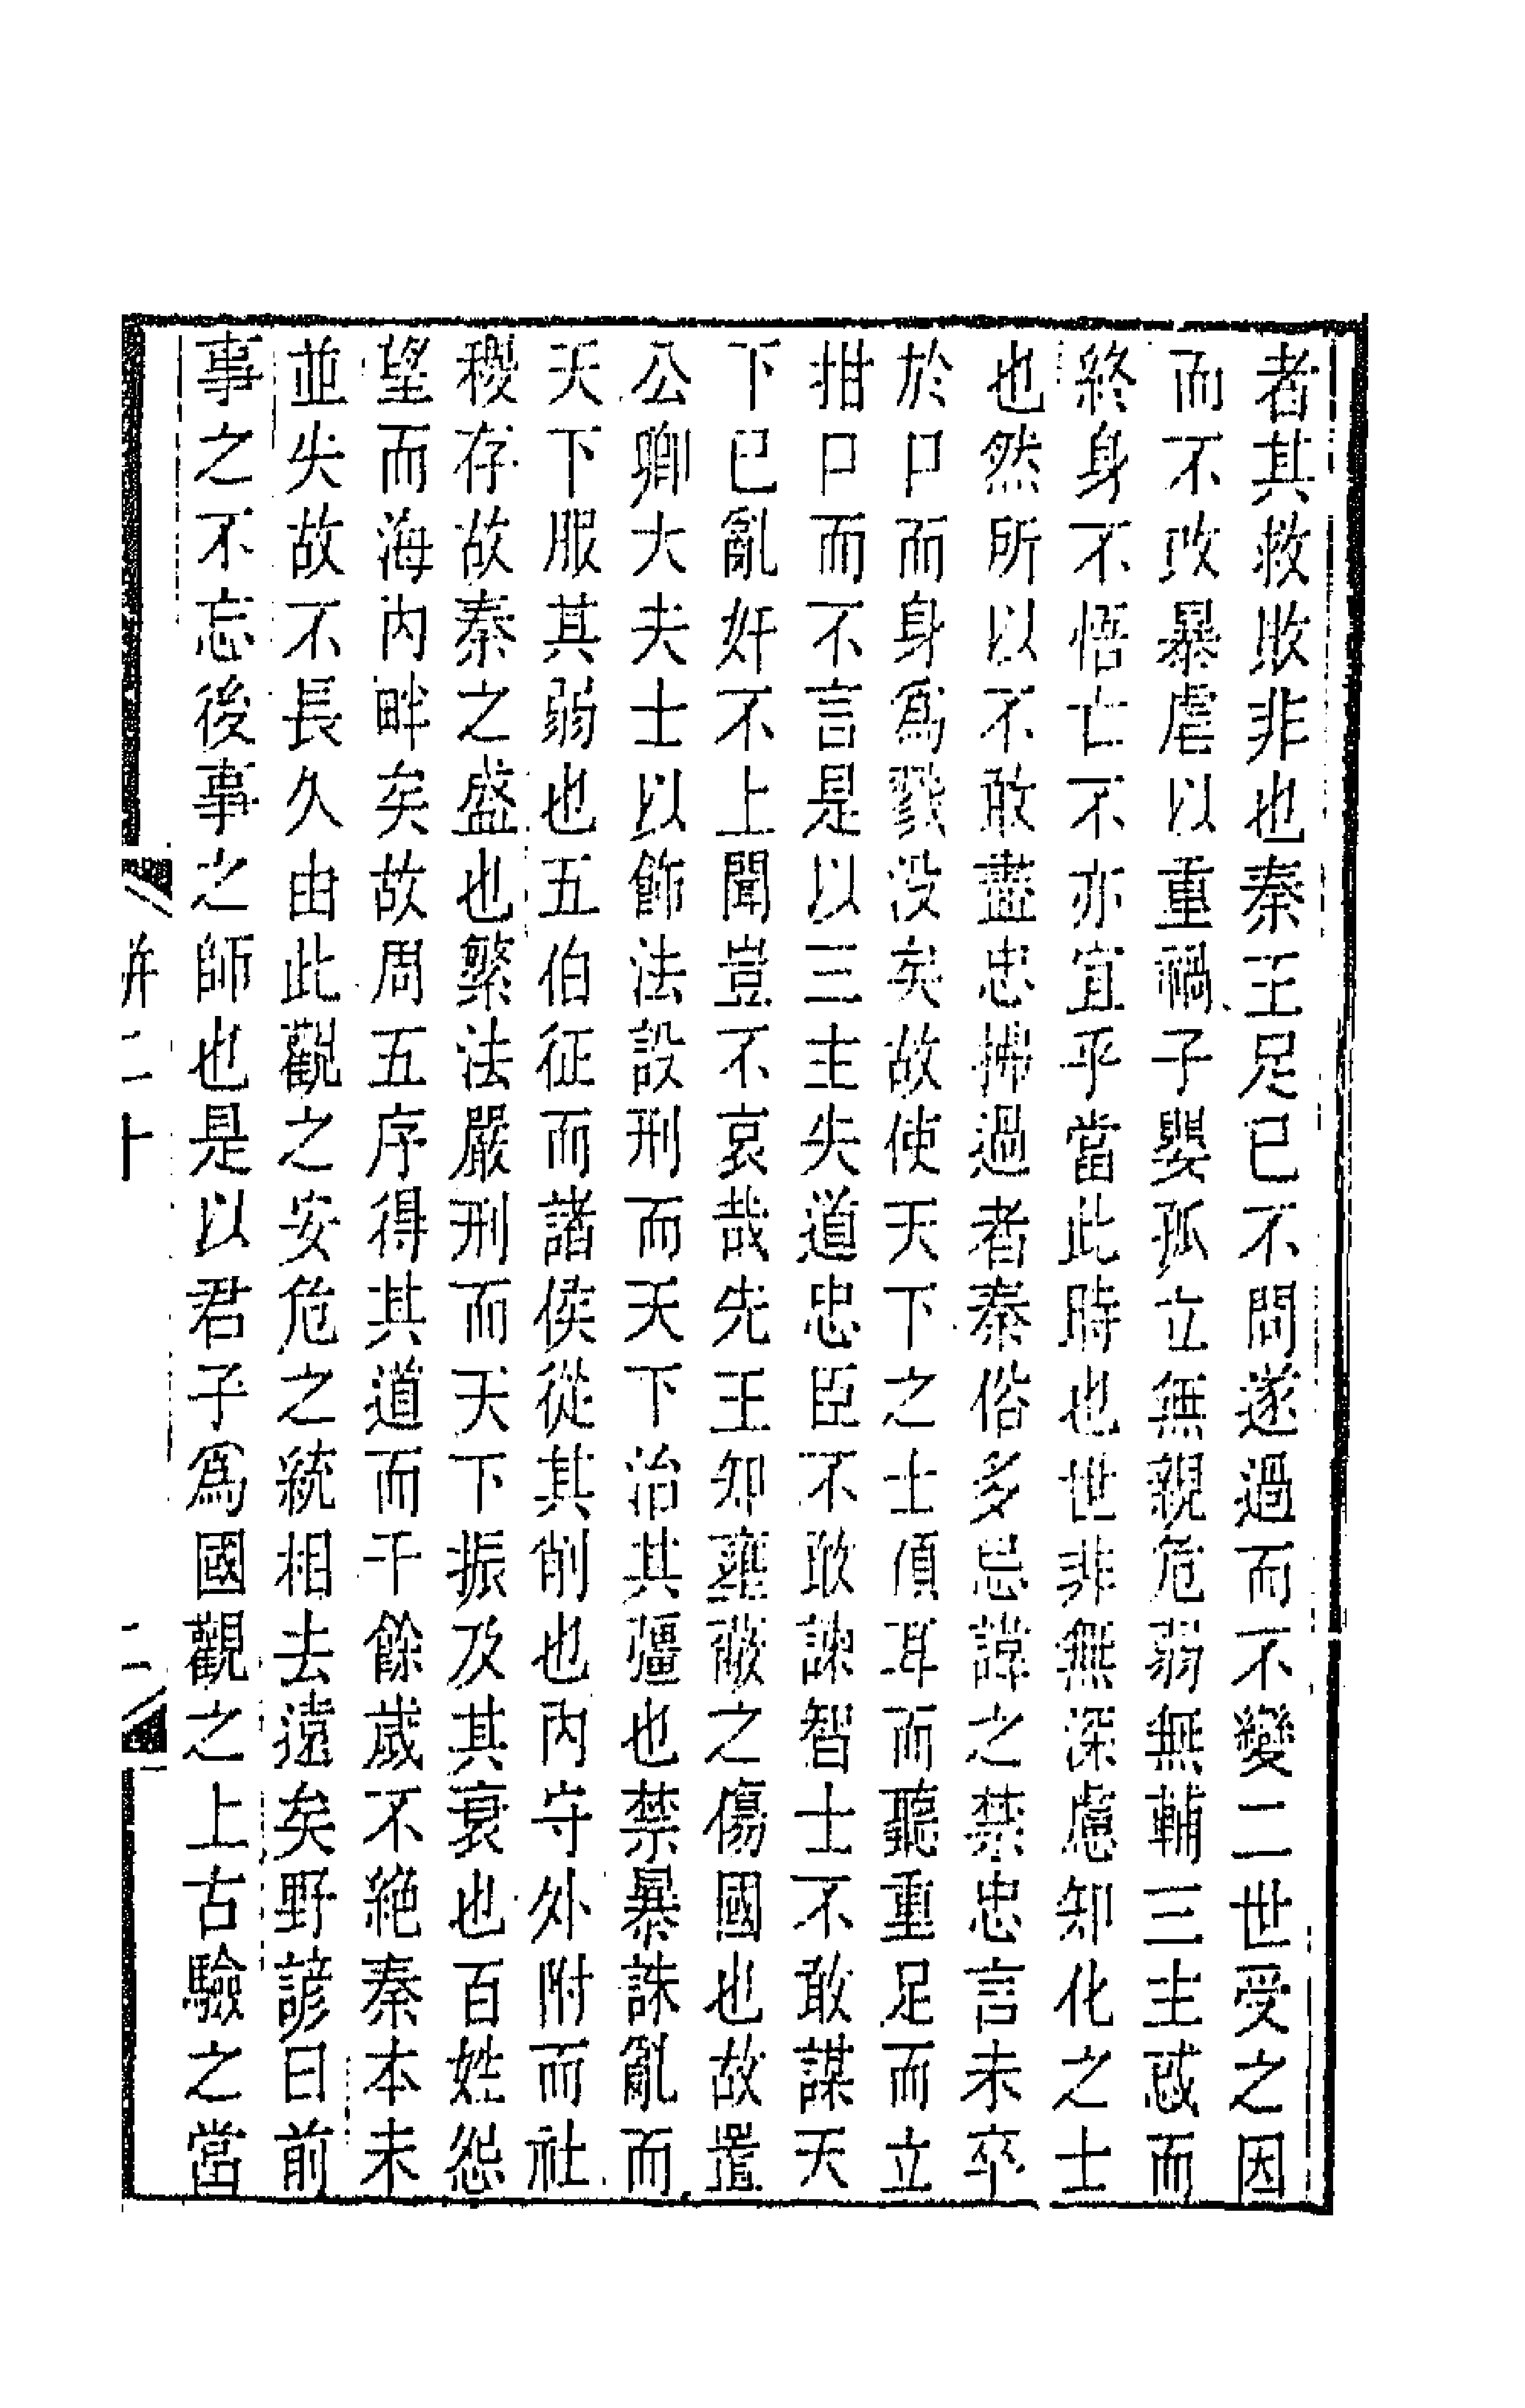 者其救敗非也秦王足已不問遂過而不變二世受之因
而不改暴虐以重禍子嬰孤立無親危弱無輔三主惑而
終身不悟亡不亦宜乎當此時也世非無深慮知化之士
也然所以不敢盡忠拂過者秦俗多忌諱之禁忠言未卒
於口而身爲戮没矣故使天下之士傾耳而聽重足而立
拑口而不言是以三主失道忠臣不敢諫智士不敢謀天
下已亂奸不上聞豈不哀哉先王知壅蔽之傷國也故置
公卿大夫士以飾法設刑而天下治其彊也禁暴誅亂而
天下服其弱也五伯征而諸侯從其削也内守外附而社
稷存故秦之盛也繁法嚴刑而天下振及其衰也百姓怨
望而海内畔矣故周五序得其道而千餘歲不絶秦本末
並失故不長久由此觀之安危之統相去遠矣野諺曰前
事之不忘後事之師也是以君子爲國觀之上古驗之當
二十
二